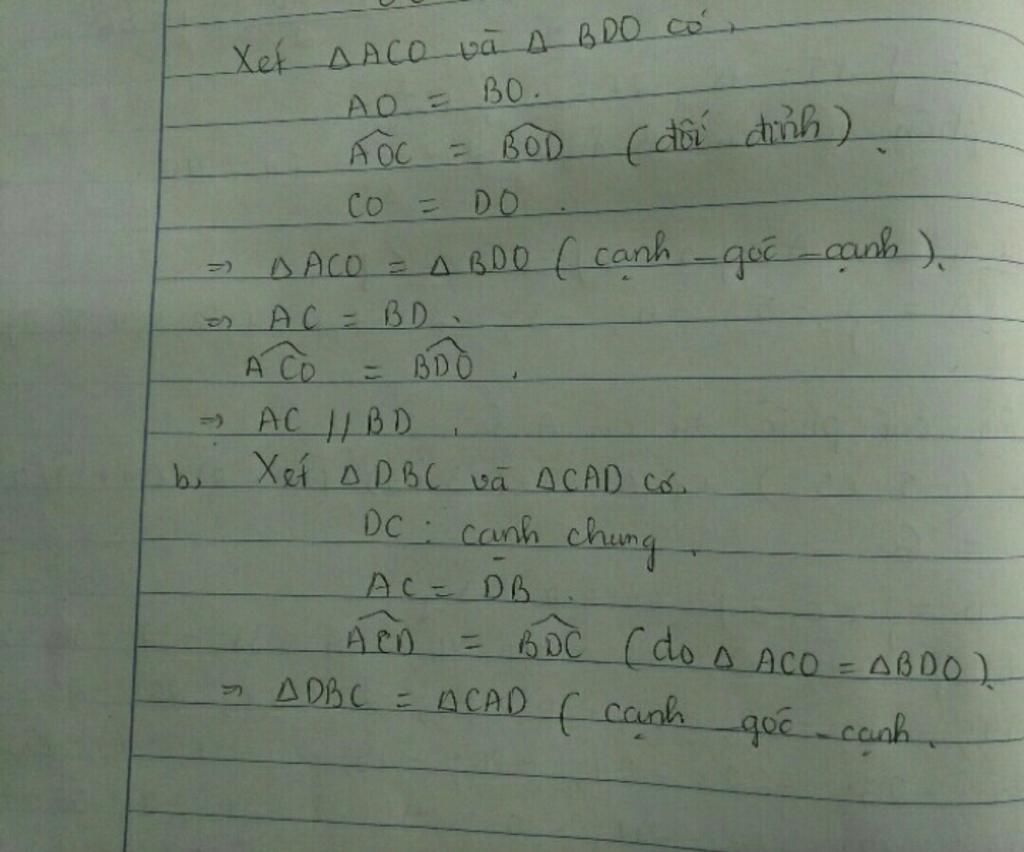 Xét Δ ACO và Δ BDO có,
AO = BO.
\widehat{AOC} = \widehat{BOD} (đối đỉnh).
CO = DO.
=> Δ ACO = Δ BDO (cạnh - góc - cạnh).
=> AC = BD.
\widehat{ACO} = \widehat{BDO}.
=> AC // BD.
b, Xét Δ DBC và Δ CAD có,
DC : cạnh chung.
AC = DB.
\widehat{ACD} = \widehat{BDC} (do Δ ACO = Δ BDO).
=> Δ DBC = Δ CAD (cạnh góc - cạnh.